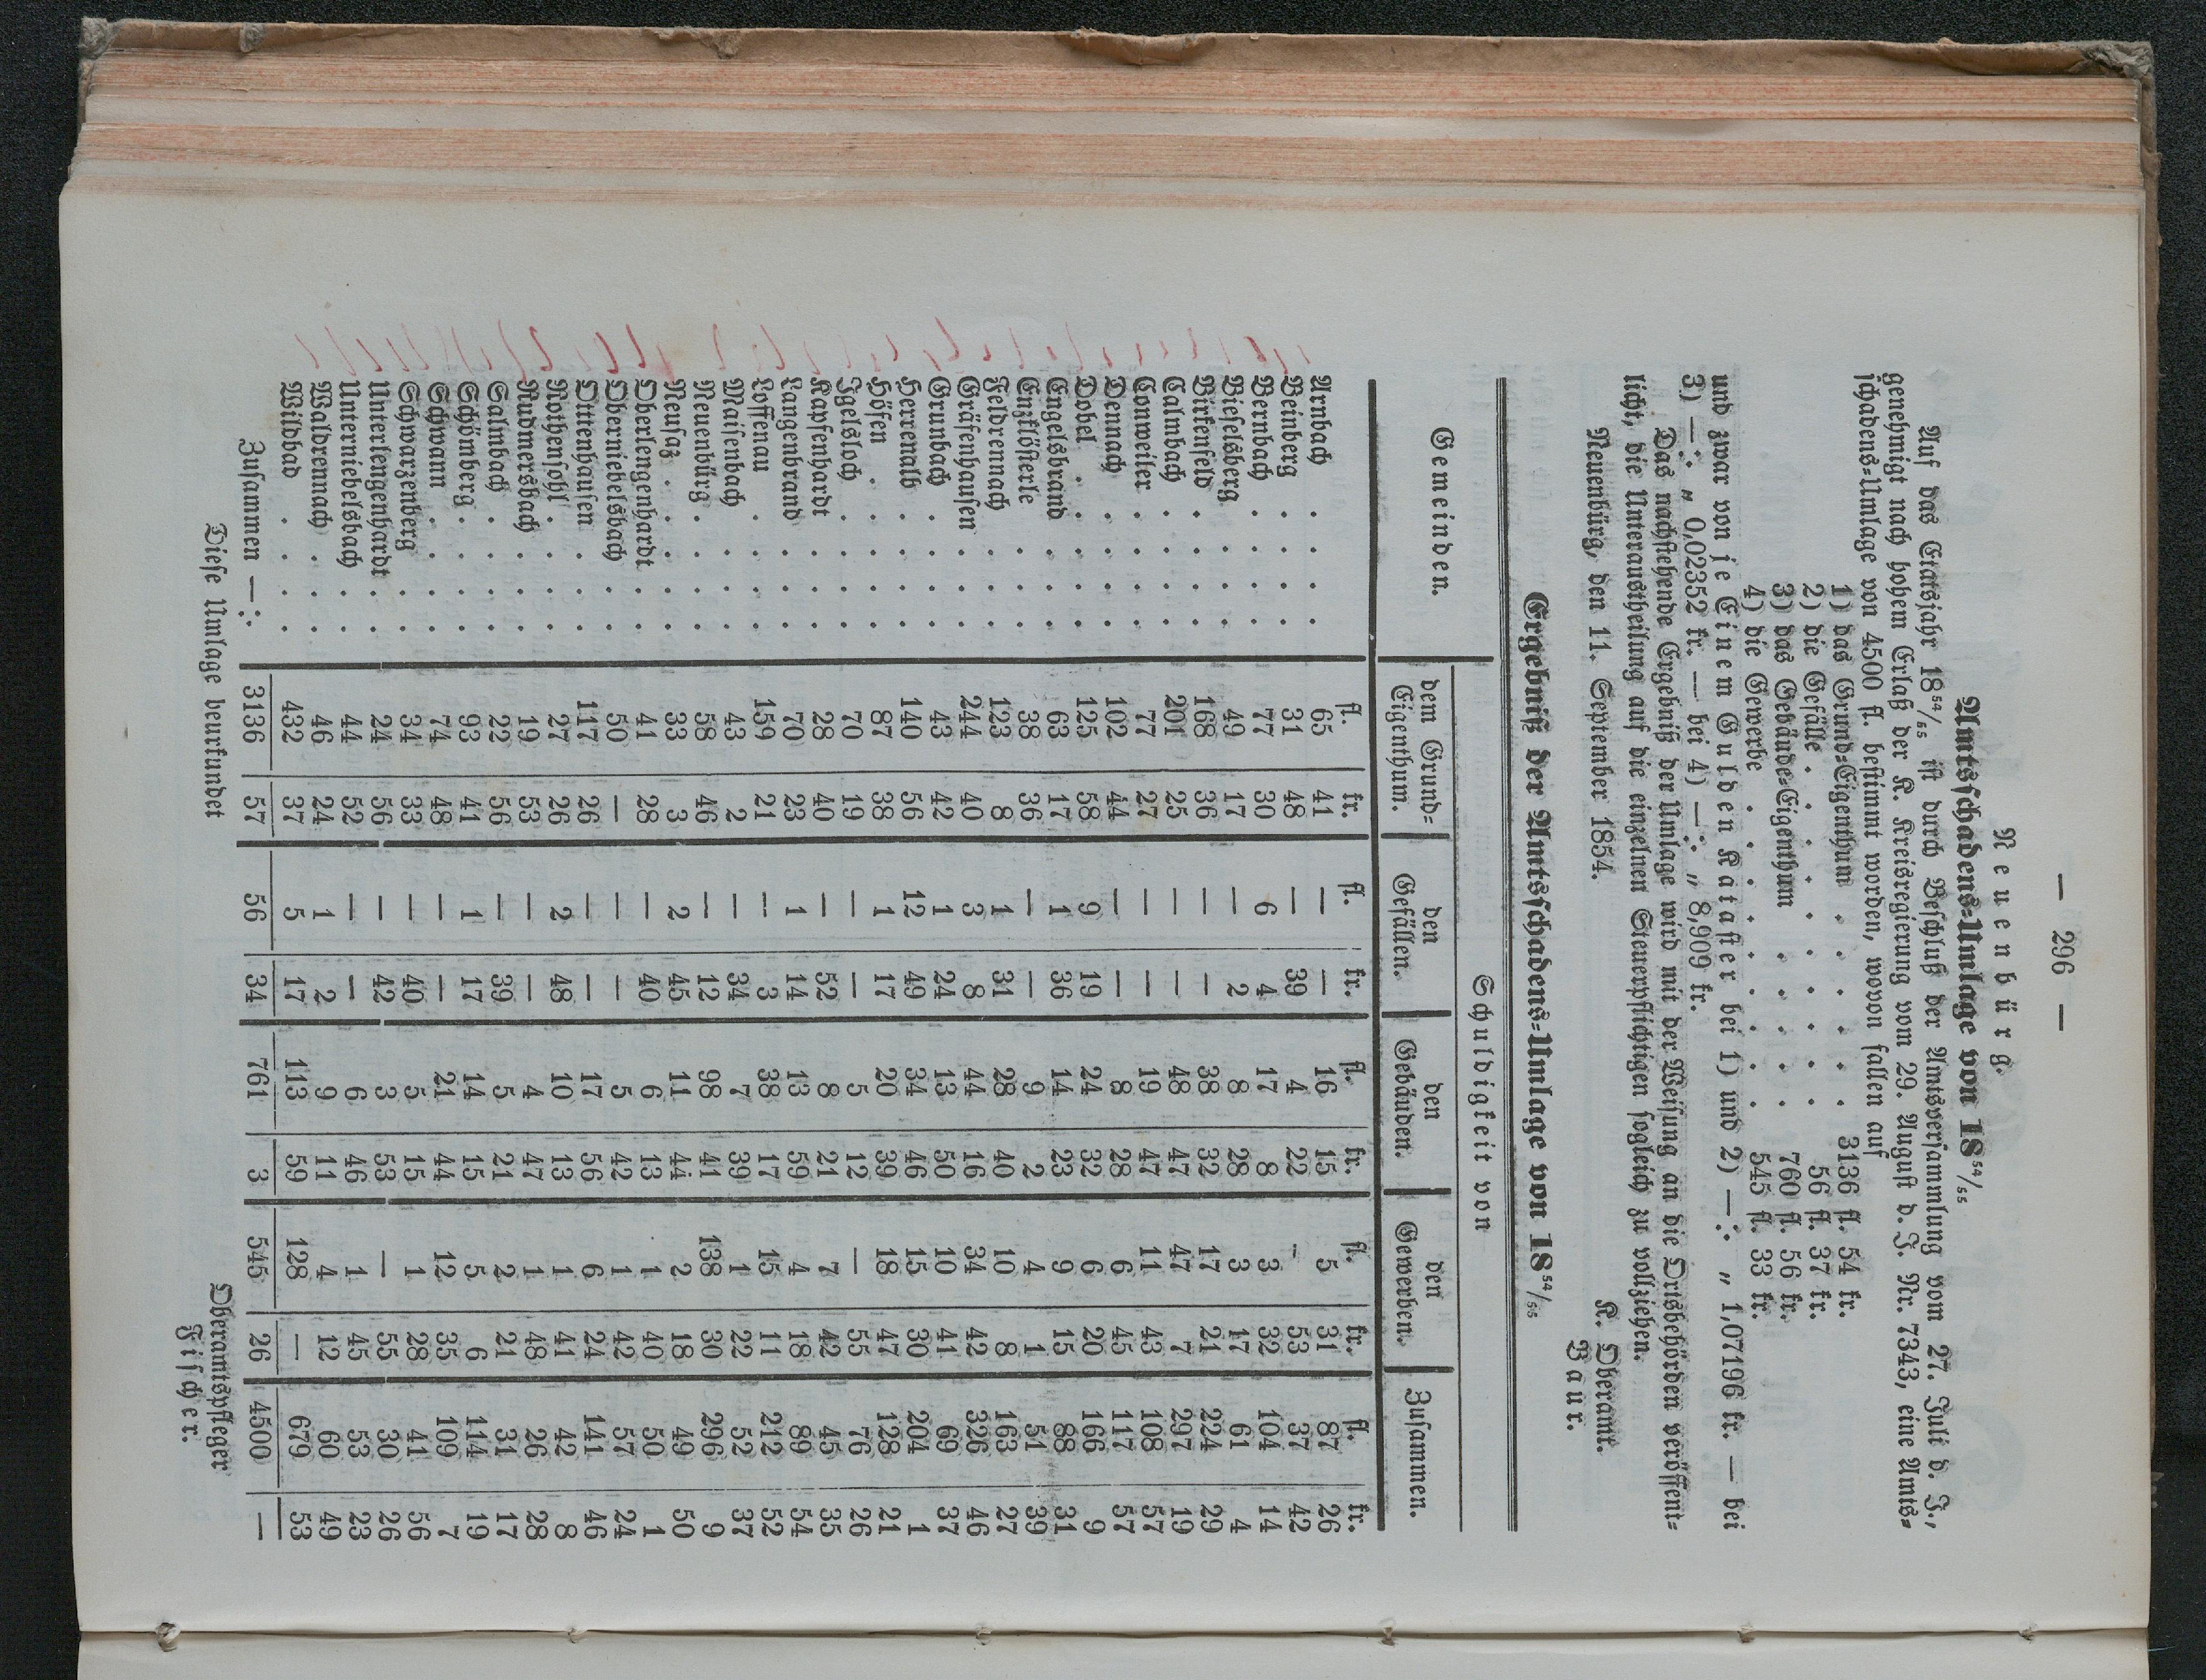 — 296 —
Neuenbürg.
Amtsschadens-Umlage von 18⁵⁴/₅₅
Auf das Etatsjahr 18⁵⁴/₅₅ ist durch Beschluß der Amtsversammlung vom 27. Juli d. J.,
genehmigt nach hohem Erlaß der K. Kreisregierung vom 29. August d. J. Nr. 7343, eine Amts-
schadens-Umlage von 4500 fl. bestimmt worden, wovon fallen auf
1) das Grund-Eigenthum . . . . 3136 fl. 54 kr.
2) die Gefälle . . . . . . . 56 fl. 37 kr.
3) das Gebäude-Eigenthum . . . . 760 fl. 56 kr.
4) die Gewerbe . . . . . . . 545 fl. 33 kr.
und zwar von je Einem Gulden Kataster bei 1) und 2) —: „ 1,07196 kr. — bei
3) —: „ 0,02352 kr. — bei 4) —: „ 8,909 kr.
Das nachstehende Ergebniß der Umlage wird mit der Weisung an die Ortsbehörden veröffent-
licht, die Unteraustheilung auf die einzelnen Steuerpflichtigen sogleich zu vollziehen.
Neuenbürg, den 11. September 1854.
K. Oberamt.
Baur.
Ergebniß der Amtsschadens-Umlage von 18⁵⁴/₅₅
Schuldigkeit von
Gemeinden. dem Grund-Eigenthum. den Gefällen. den Gebäuden. den Gewerben. Zusammen.
fl. kr. fl. kr. fl. kr. fl. kr. fl. kr.
Arnbach . . . 65 41 — — 16 15 5 31 87 26
Beinberg . . . 31 48 — 39 4 22 - 53 37 42
Bernbach . . . 77 30 6 4 17 8 3 32 104 14
Bieselsberg . . . 49 17 — 2 8 28 3 17 61 4
Birkenfeld . . . 168 36 — — 38 32 17 21 224 29
Calmbach . . . 201 25 — — 48 47 47 7 297 19
Conweiler . . . 77 27 — — 19 47 11 43 108 57
Dennach . . . 102 44 — — 8 28 6 45 117 57
Dobel . . . . 125 58 9 19 24 32 6 20 166 9
Engelsbrand . . . 63 17 1 36 14 23 9 15 88 31
Enzklösterle . . . 38 36 — — 9 2 4 1 51 39
Feldrennach . . . 123 8 1 31 28 40 10 8 163 27
Gräfenhausen . . . 244 40 3 8 44 16 34 42 326 46
Grunbach . . . 43 42 1 24 13 50 10 41 69 37
Herrenalb . . . 140 56 12 49 34 46 15 30 204 1
Höfen . . . . 87 38 1 17 20 39 18 47 128 21
Igelsloch . . . 70 19 — — 5 12 — 55 76 26
Kapfenhardt . . . 28 40 — 52 8 21 7 42 45 35
Langenbrand . . . 70 23 1 14 13 59 4 18 89 54
Loffenau . . . 159 21 — 3 38 17 15 11 212 52
Maisenbach . . . 43 2 — 34 7 39 1 22 52 37
Neuenbürg . . . 58 46 — 12 98 41 138 30 296 9
Neusaz . . . . 33 3 2 45 11 44 2 18 49 50
Oberlengenhardt . . 41 28 — 40 6 13 1 40 50 1
Oberniebelsbach . . 50 — — — 5 42 1 42 57 24
Ottenhausen . . . 117 26 — — 17 56 6 24 141 46
Rothensohl . . . 27 26 2 48 10 13 1 41 42 8
Rudmersbach . . . 19 53 — — 4 47 1 48 26 28
Salmbach . . . 22 56 — 39 5 21 2 21 31 17
Schömberg . . . 93 41 1 17 14 15 5 6 114 19
Schwann . . . 74 48 — — 21 44 12 35 109 7
Schwarzenberg . . . 34 33 — 40 5 15 1 28 41 56
Unterlengenhardt . . 24 56 — 42 3 53 — 55 30 26
Unterniebelsbach . . 44 52 — — 6 46 1 45 53 23
Waldrennach . . . 46 24 1 2 9 11 4 12 60 49
Wildbad . . . 432 37 5 17 113 59 128 — 679 53
Zusammen —: 3136 57 56 34 761 3 545 26 4500 —
Diese Umlage beurkundet
Oberamtspfleger
Fischer.